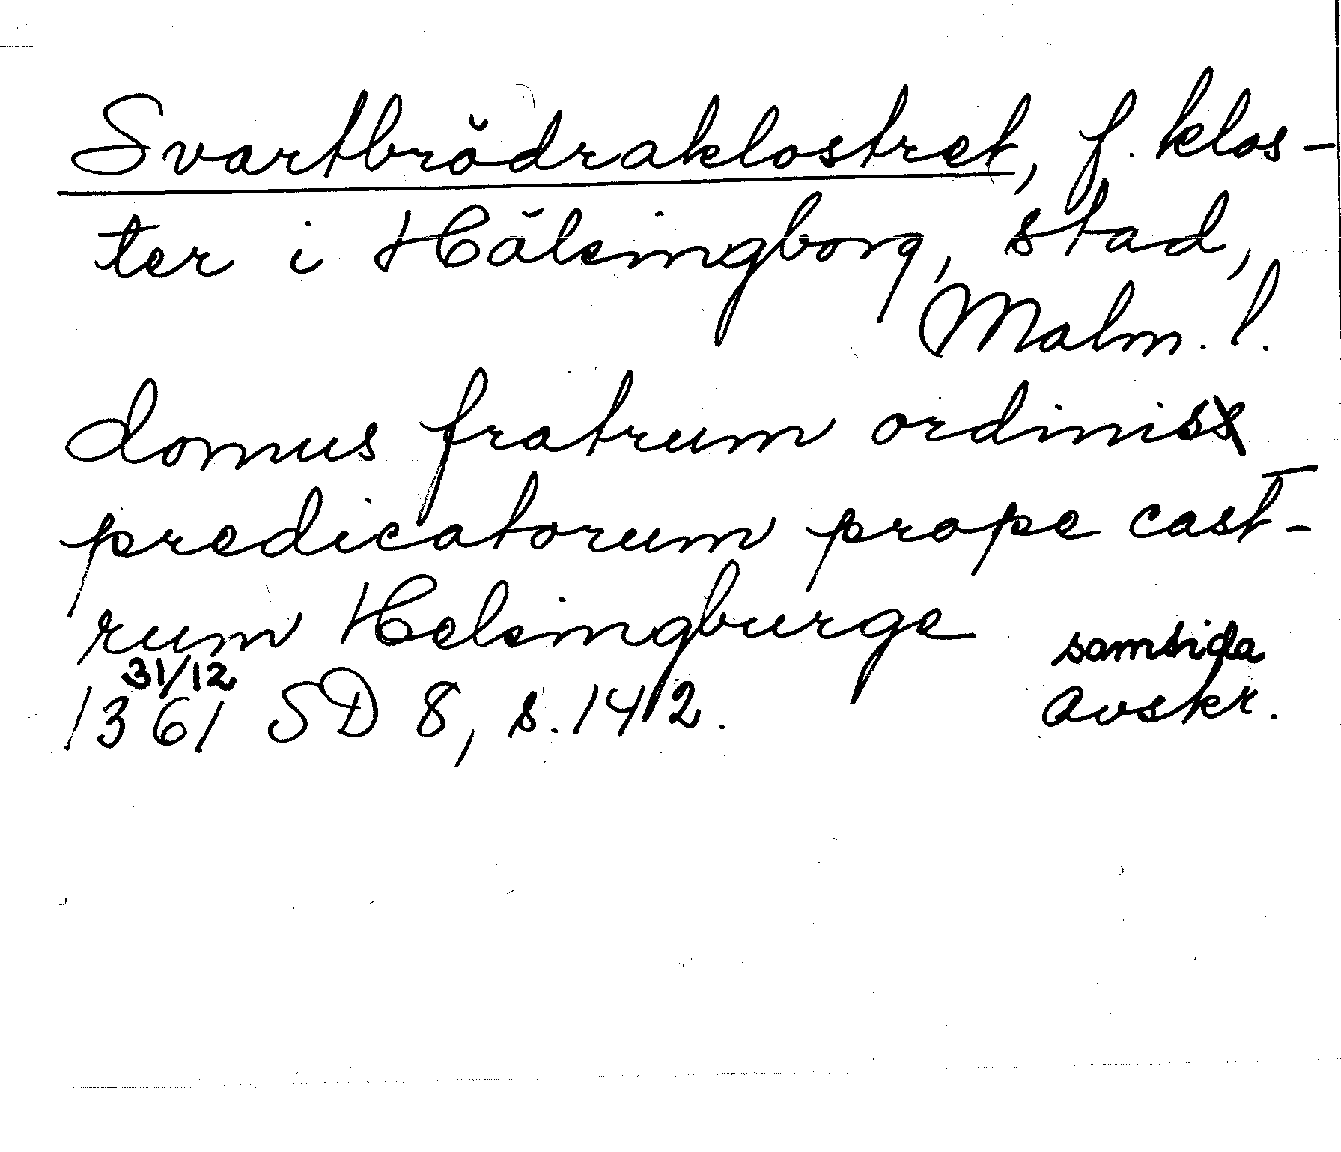 Svartbrödraklostret, f. klos-
ter i Hälsingborg, stad,
Malm. l.
domus fratrum ordinis
predicatorum prope cast-
rum Helsingburge
samtida
31/12
1361 SD 8, s. 142.
Avskr.